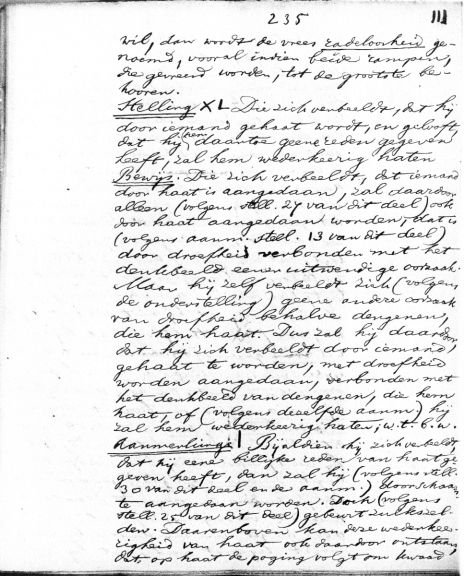 235
III
wil, dan wordt de vrees radeloosheid ge-
noemd, vooral indien beide rampen,
die gevreesd worden, tot de grootste be-
hooren.
Stelling XL Die zich verbeeldt, dat hij
door iemand gehaat wordt, en gelooft,
dat hij hem daartoe geene reden gegeven
heeft, zal hem wederkeerig haten
Bewijs. Die zich verbeeldt, dat iemand
door haat is aangedaan, zal daardoor
alleen (volgens stell. 27 van dit deel) ook
door haat aangedaan worden, dat is
(volgens aanm. stell. 13 van dit deel)
door droefheid verbonden met het
denkbeeld eener uitwendige oorzaak.
Maar hij zelf verbeeldt zich (volgens
de onderstelling) geene andere oorzaak
van droefheid behalve dengenen,
die hem haat. Dus zal hij daardoor
dat hij zich verbeeldt door iemand,
gehaat te worden, met droefheid
worden aangedaan, verbonden met
het denkbeeld van dengenen, die hem
haat, of (volgens dezelfde aanm.) hij
zal hem wederkeerig haten, w.t.b.w.
Aanmerking I Bijaldien hij zich verbeeldt,
dat hij eene billijke reden van haat ge-
geven heeft, dan zal hij (volgens stell.
30 van dit deel en de aanm.) door schaam-
te aangedaan worden. Doch (volgens
stell. 25 van dit deel) gebeurt zulks zel-
den. Daarenboven kan deze wederkee-
righeid van haat ook daardoor ontstaan,
dat op haat de poging volgt om kwaad